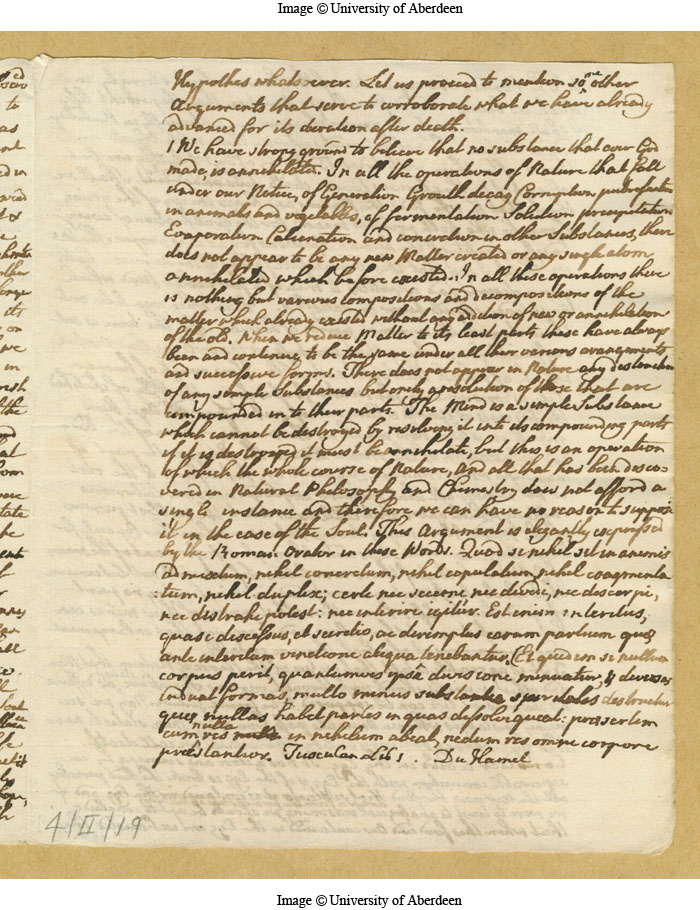 Image © University of Aberdeen
Hypothes whatsoever. Let us proceed to mention some other
Arguments that serve to corroborate what we have already
advanced for its duration after death.
1 We have strong ground to believe that no substance that ever God
made, is annihilate. In all the operations of Nature that fall
under our Notice, of Generation Grouth decay Corruption putrefaction
in animals and vegetables, of fermentation Solution precipitation
Evaporation Calcination and concretion in other Substances, there
does not appear to be any new Matter created or any single atom
annihilated which before existed. In all these operations there
is nothing but various compositions and decompositions of the
matter which already existed without any addition of new or annihilation
of the old. When we reduce Matter to its least parts these have always
been and continue to be the same under all their various arangements
and successive forms. There does not appear in Nature any destruction
of any simple Substances but onely a resolution of those that are
compounded in to their parts. The Mind is a simple Substance
which cannot be destroyed by resolving it into its compounding parts
if it is destroyed it must be annihilate, but this is an operation
of which the whole course of Nature, and all that has been disco
vered in Natural Philosophy and Chimestry does not afford a
single instance and therefore we can have no reason to suppose
it in the case of the Soul. This Argument is elegantly expressed
by the Roman Orator in these Words. Quod si nihil sit in animis
admixtum, nihil concretum, nihil copulatum, nihil coagmenta
tum, nihil duplex; certe nec secerni, nec dividi, nec discerpi,
nec distrahi potest: nec interire igitur. Est enim interitus,
quasi discessus, et secretio, ac diremptus earum partium quæ
ante interitum junctione aliqua tenebantur. Et quidem si nullum
corpus perit, quantumvis ipsa divisione minuatur, & diversas
induat formas, multo minus substantia spiritales destruetur
quæ nullas habet partes in quas dissolvi queat: præsertim
cum res nulla in nihilum abeat, nedum res omni corpore
præstantior. Tusculan Lib 1. Du Hamel
4/II/19
Image © University of Aberdeen